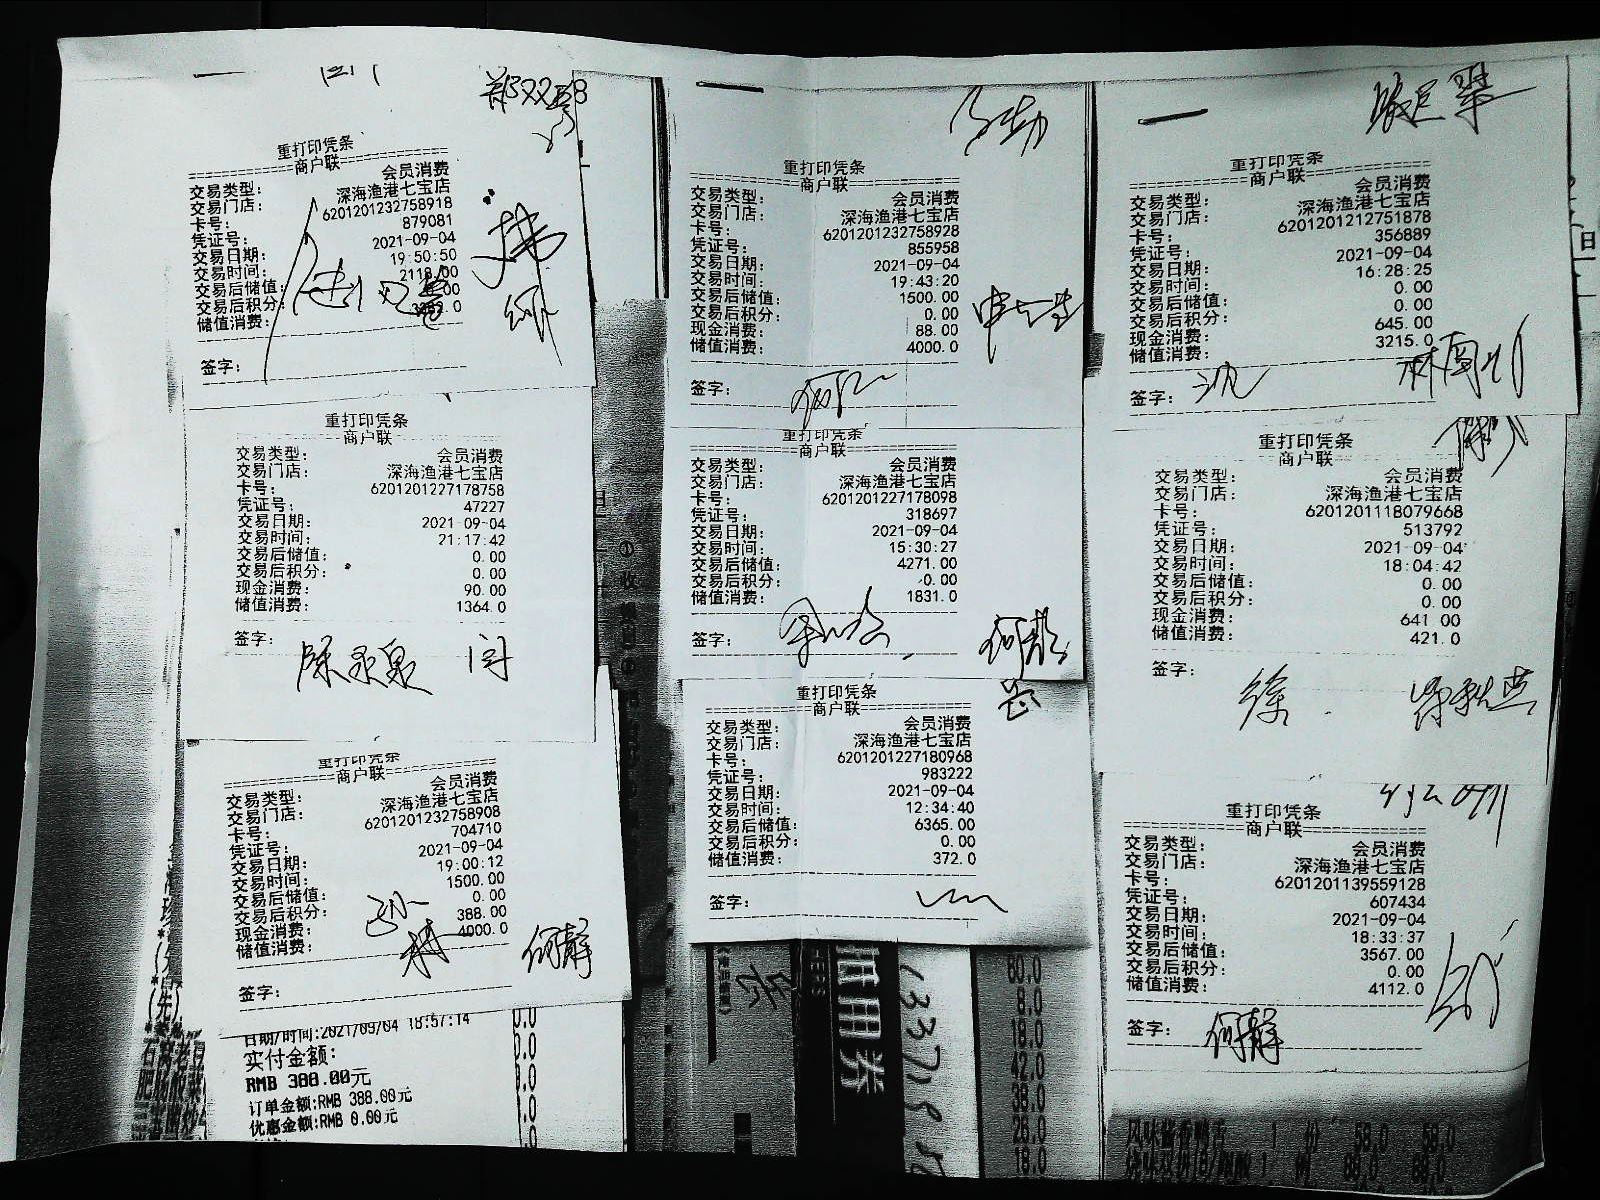 郑双
重打印凭条
商户联
交易类型: 会员消费
交易门店: 深海渔港七宝店
卡号: 6201201232758918
凭证号: 879081
交易日期: 2021-09-04
交易时间: 19:50:50
交易后储值: 2118.00
交易后积分:
储值消费:
签字:
重打印凭条
商户联
交易类型: 会员消费
交易门店: 深海渔港七宝店
卡号: 6201201227178758
凭证号: 47227
交易日期: 2021-09-04
交易时间: 21:17:42
交易后储值: 0.00
交易后积分: 0.00
现金消费: 90.00
储值消费: 1364.0
签字:
陈永泉
重打印凭条
商户联
交易类型: 会员消费
交易门店: 深海渔港七宝店
卡号: 6201201232758908
凭证号: 704710
交易日期: 2021-09-04
交易时间: 19:00:12
交易后储值: 1500.00
交易后积分: 0.00
现金消费: 388.00
储值消费: 4000.0
何静
签字:
日期/时间:2021/09/04 18:57:14
实付金额:
RMB 388.00元
订单金额:RMB 388.00元
优惠金额:RMB 0.00元
重打印凭条
商户联
交易类型: 会员消费
交易门店: 深海渔港七宝店
卡号: 6201201232758928
凭证号: 855958
交易日期: 2021-09-04
交易时间: 19:43:20
交易后储值: 1500.00
交易后积分: 0.00
现金消费: 88.00
储值消费: 4000.0
签字:
重打印凭条
商户联
交易类型: 会员消费
交易门店: 深海渔港七宝店
卡号: 6201201227178098
凭证号: 318697
交易日期: 2021-09-04
交易时间: 15:30:27
交易后储值: 4271.00
交易后积分: 0.00
储值消费: 1831.0
签字:
重打印凭条
商户联
交易类型: 会员消费
交易门店: 深海渔港七宝店
卡号: 6201201227180968
凭证号: 983222
交易日期: 2021-09-04
交易时间: 12:34:40
交易后储值: 6365.00
交易后积分: 0.00
储值消费: 372.0
签字:
抵用券
60.0
8.0
18.0
42.0
38.0
26.0
18.0
重打印凭条
商户联
交易类型: 会员消费
交易门店: 深海渔港七宝店
卡号: 6201201212751878
凭证号: 356889
交易日期: 2021-09-04
交易时间: 16:28:25
交易后储值: 0.00
交易后积分: 0.00
现金消费: 645.00
储值消费: 3215.0
签字: 沈
重打印凭条
商户联
交易类型: 会员消费
交易门店: 深海渔港七宝店
卡号: 6201201118079668
凭证号: 513792
交易日期: 2021-09-04
交易时间: 18:04:42
交易后储值: 0.00
交易后积分: 0.00
现金消费: 641.00
储值消费: 421.0
签字:
徐
重打印凭条
商户联
交易类型: 会员消费
交易门店: 深海渔港七宝店
卡号: 6201201139559128
凭证号: 607434
交易日期: 2021-09-04
交易时间: 18:33:37
交易后储值: 3567.00
交易后积分: 0.00
储值消费: 4112.0
签字: 何静